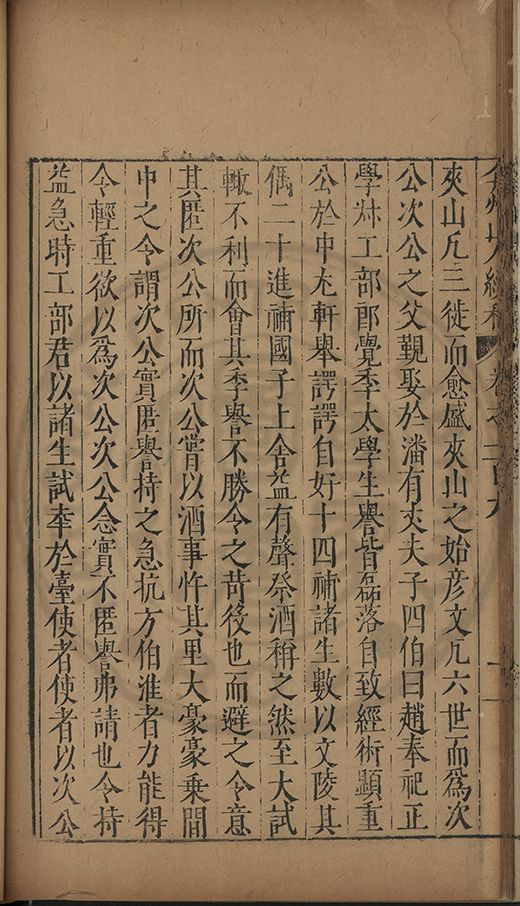 夾山凢三徙而愈盛夾山之始彦文凢六世而爲次
公次公之父覲娶於潘有丈夫子四伯曰趙奉祀正
學叔工部郎覺季太學生譽皆磊落自致經術顯重
公於中尤軒舉諤諤自好十四補諸生數以文陵其
偶二十進補國子上舍益有聲祭酒稱之然至大試
輙不利而會其季譽不勝令之苛役也而避之令意
其匿次公所而次公嘗以酒事忤其里大豪豪乗間
中之令謂次公實匿譽持之急抗方伯淮者力能得
令輕重欲以爲次公次公念實不匿譽弗請也令持
益急時工部君以諸生試牽於臺使者使者以次公